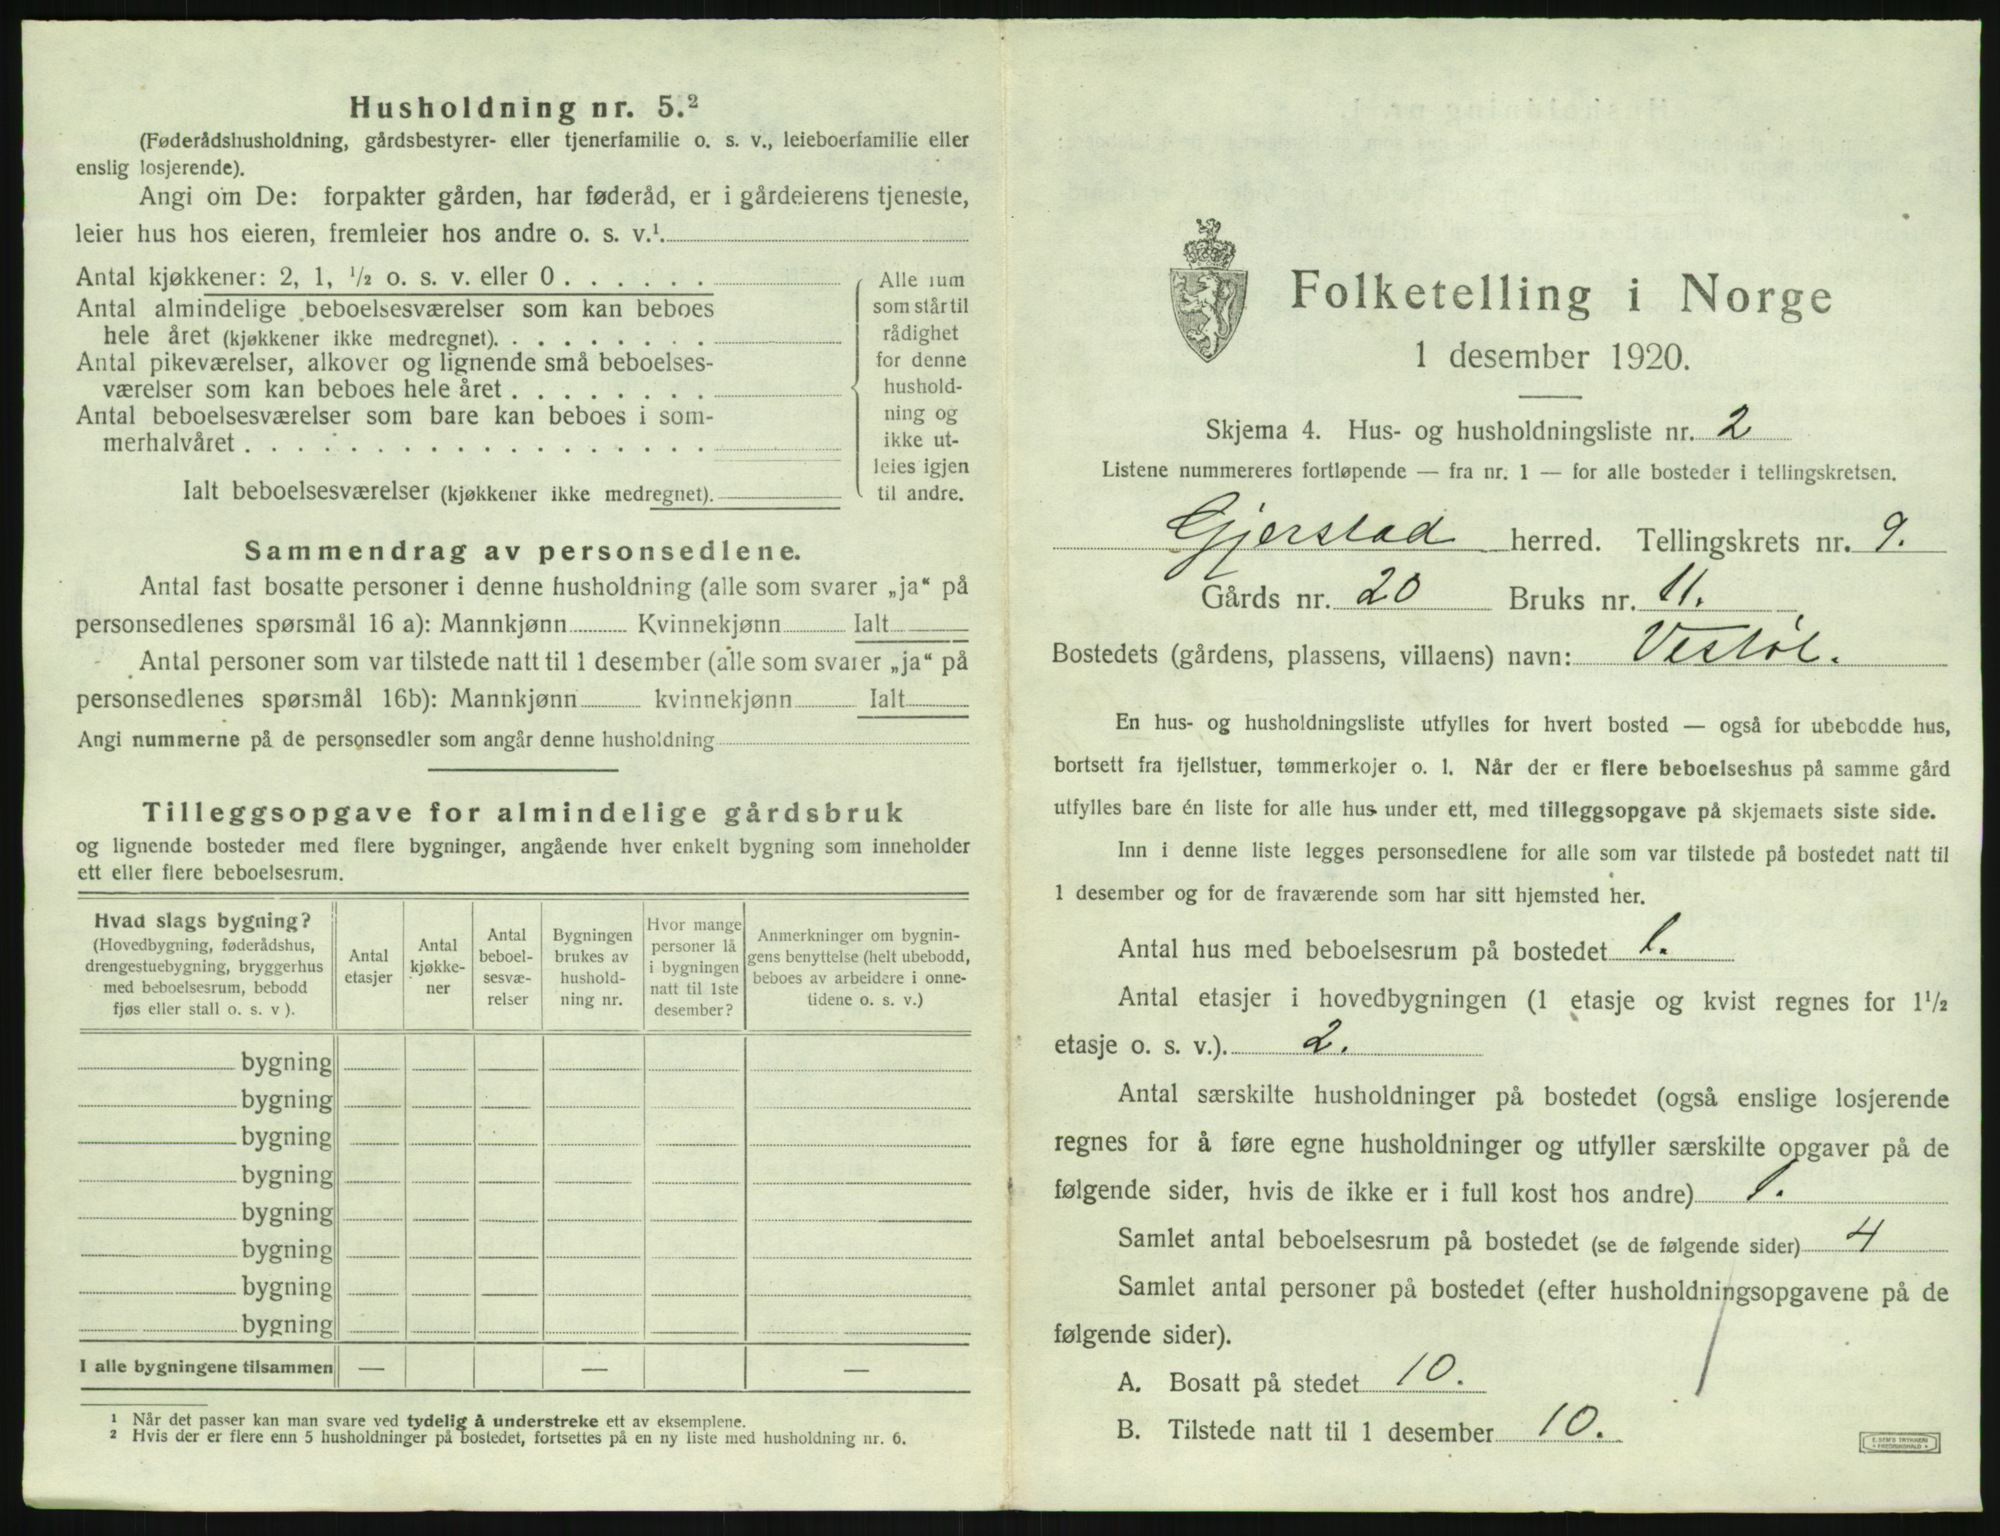 Husholdning nr. 5.²
(Føderådshusholdning, gårdsbestyrer- eller tjenerfamilie o. s. v., leieboerfamilie eller
enslig losjerende).
Angi om De: forpakter gården, har føderåd, er i gårdeierens tjeneste,
leier hus hos eieren, fremleier hos andre o. s. v.¹.
Antal kjøkkener: 2, 1, ½ o. s. v. eller 0 . . . . . .
Antal almindelige beboelsesværelser som kan beboes
hele året (kjøkkener ikke medregnet). . . . . . . . .
Antal pikeværelser, alkover og lignende små beboelses-
værelser som kan beboes hele året . . . . . . . .
Antal beboelsesværelser som bare kan beboes i som-
merhalvåret . . . . . . . . . . . . . . . . . .
Ialt beboelsesværelser (kjøkkener ikke medregnet).
Alle rum
som står til
rådighet
for denne
hushold-
ning og
ikke ut-
leies igjen
til andre.
Sammendrag av personsedlene.
Antal fast bosatte personer i denne husholdning (alle som svarer „ja“ på
personsedlenes spørsmål 16 a): Mannkjønn Kvinnekjønn Ialt
Antal personer som var tilstede natt til 1 desember (alle som svarer „ja“ på
personsedlenes spørsmål 16b): Mannkjønn kvinnekjønn Ialt
Angi nummerne på de personsedler som angår denne husholdning
Tilleggsopgave for almindelige gårdsbruk
og lignende bosteder med flere bygninger, angående hver enkelt bygning som inneholder
ett eller flere beboelsesrum.
Hvad slags bygning?
(Hovedbygning, føderådshus,
drengestuebygning, bryggerhus
med beboelsesrum, bebodd
fjøs eller stall o. s. v ).
Antal
etasjer
Antal
kjøkke-
ner
Antal
beboel-
sesvæ-
relser
Bygningen
brukes av
hushold-
ning nr.
Hvor mange
personer lå
i bygningen
natt til 1ste
desember?
Anmerkninger om bygnin-
gens benyttelse (helt ubebodd,
beboes av arbeidere i onne-
tidene o. s. v.)
bygning
bygning
bygning
bygning
bygning
bygning
bygning
bygning
I alle bygningene tilsammen — — —
¹ Når det passer kan man svare ved tydelig å understreke ett av eksemplene.
² Hvis der er flere enn 5 husholdninger på bostedet, fortsettes på en ny liste med husholdning nr. 6.
Folketelling i Norge
1 desember 1920.
Skjema 4. Hus- og husholdningsliste nr. 2
Listene nummereres fortløpende — fra nr. 1 — for alle bosteder i tellingskretsen.
Gjerstad herred. Tellingskrets nr. 9.
Gårds nr. 20 Bruks nr. 11.
Bostedets (gårdens, plassens, villaens) navn: Vestøl.
En hus- og husholdningsliste utfylles for hvert bosted — også for ubebodde hus,
bortsett fra fjellstuer, tømmerkojer o. l. Når der er flere beboelseshus på samme gård
utfylles bare én liste for alle hus under ett, med tilleggsopgave på skjemaets siste side.
Inn i denne liste legges personsedlene for alle som var tilstede på bostedet natt til
1 desember og for de fraværende som har sitt hjemsted her.
Antal hus med beboelsesrum på bostedet 1.
Antal etasjer i hovedbygningen (1 etasje og kvist regnes for 1½
etasje o. s. v.). 2.
Antal særskilte husholdninger på bostedet (også enslige losjerende
regnes for å føre egne husholdninger og utfyller særskilte opgaver på de
følgende sider, hvis de ikke er i full kost hos andre) 1.
Samlet antal beboelsesrum på bostedet (se de følgende sider) 4
Samlet antal personer på bostedet (efter husholdningsopgavene på de
følgende sider).
A. Bosatt på stedet 10.
B. Tilstede natt til 1 desember 10.
E. SEM'S TRYKKERI
• FREDRIKSHALD •